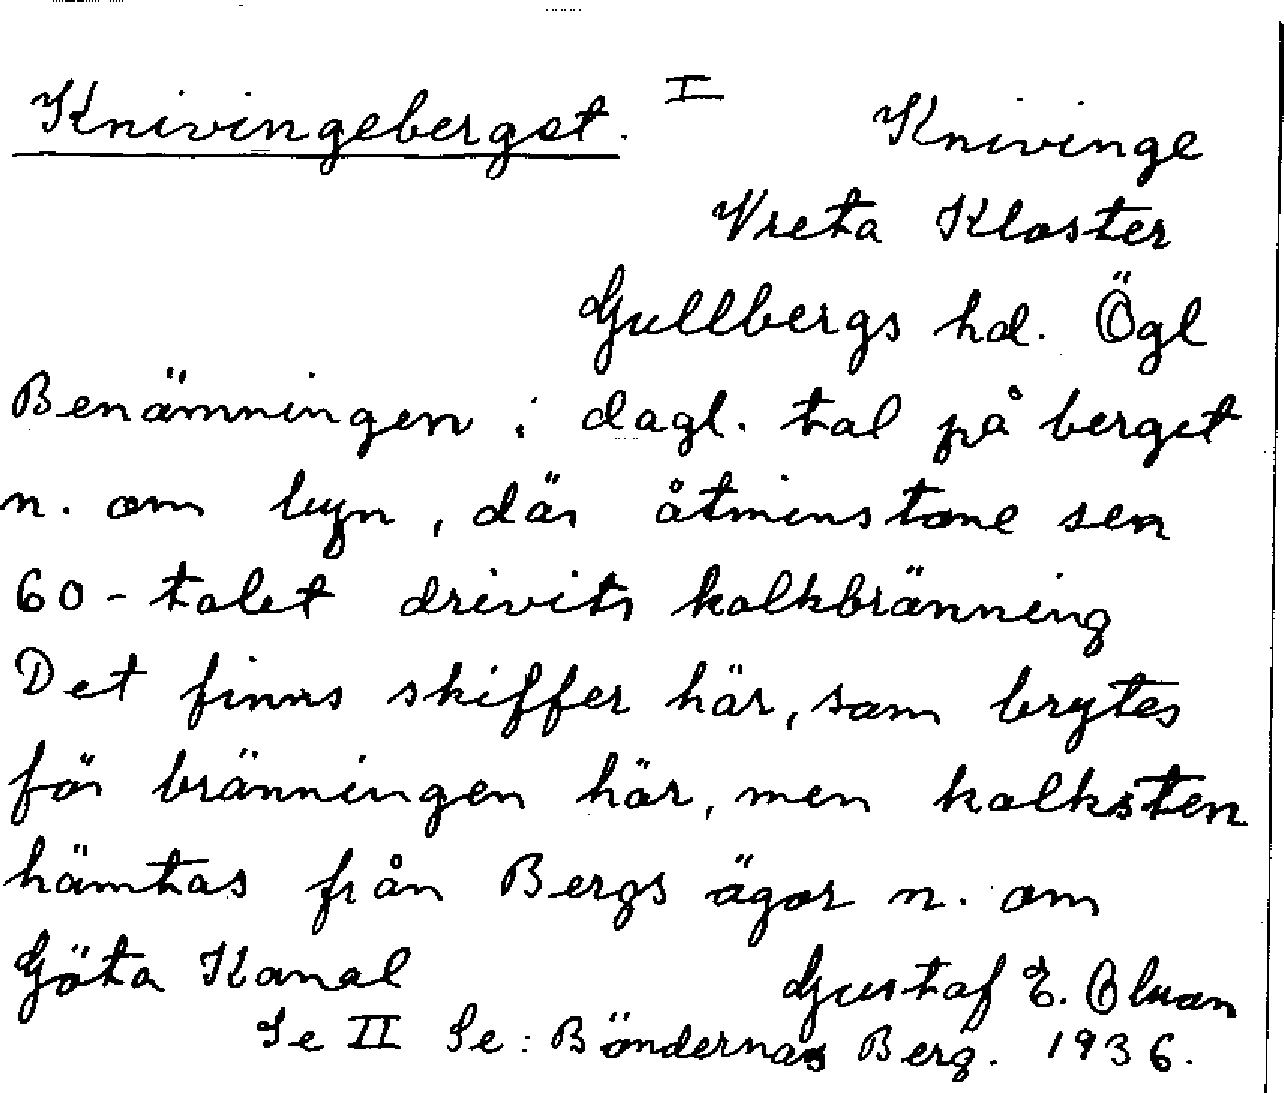 Knivingeberget. I
Knivinge
Vreta Kloster
Gullbergs hd. Ögl
Benämningen i dagl. tal på berget
n. om byn, där åtminstone sen
60-talet drivits kalkbränning
Det finns skiffer här, som brytes
för bränningen här, men kalksten
hämtas från Bergs ägor n. om
Göta Kanal
Gustaf E. Olsson
Se II Se: Böndernas Berg. 1936.